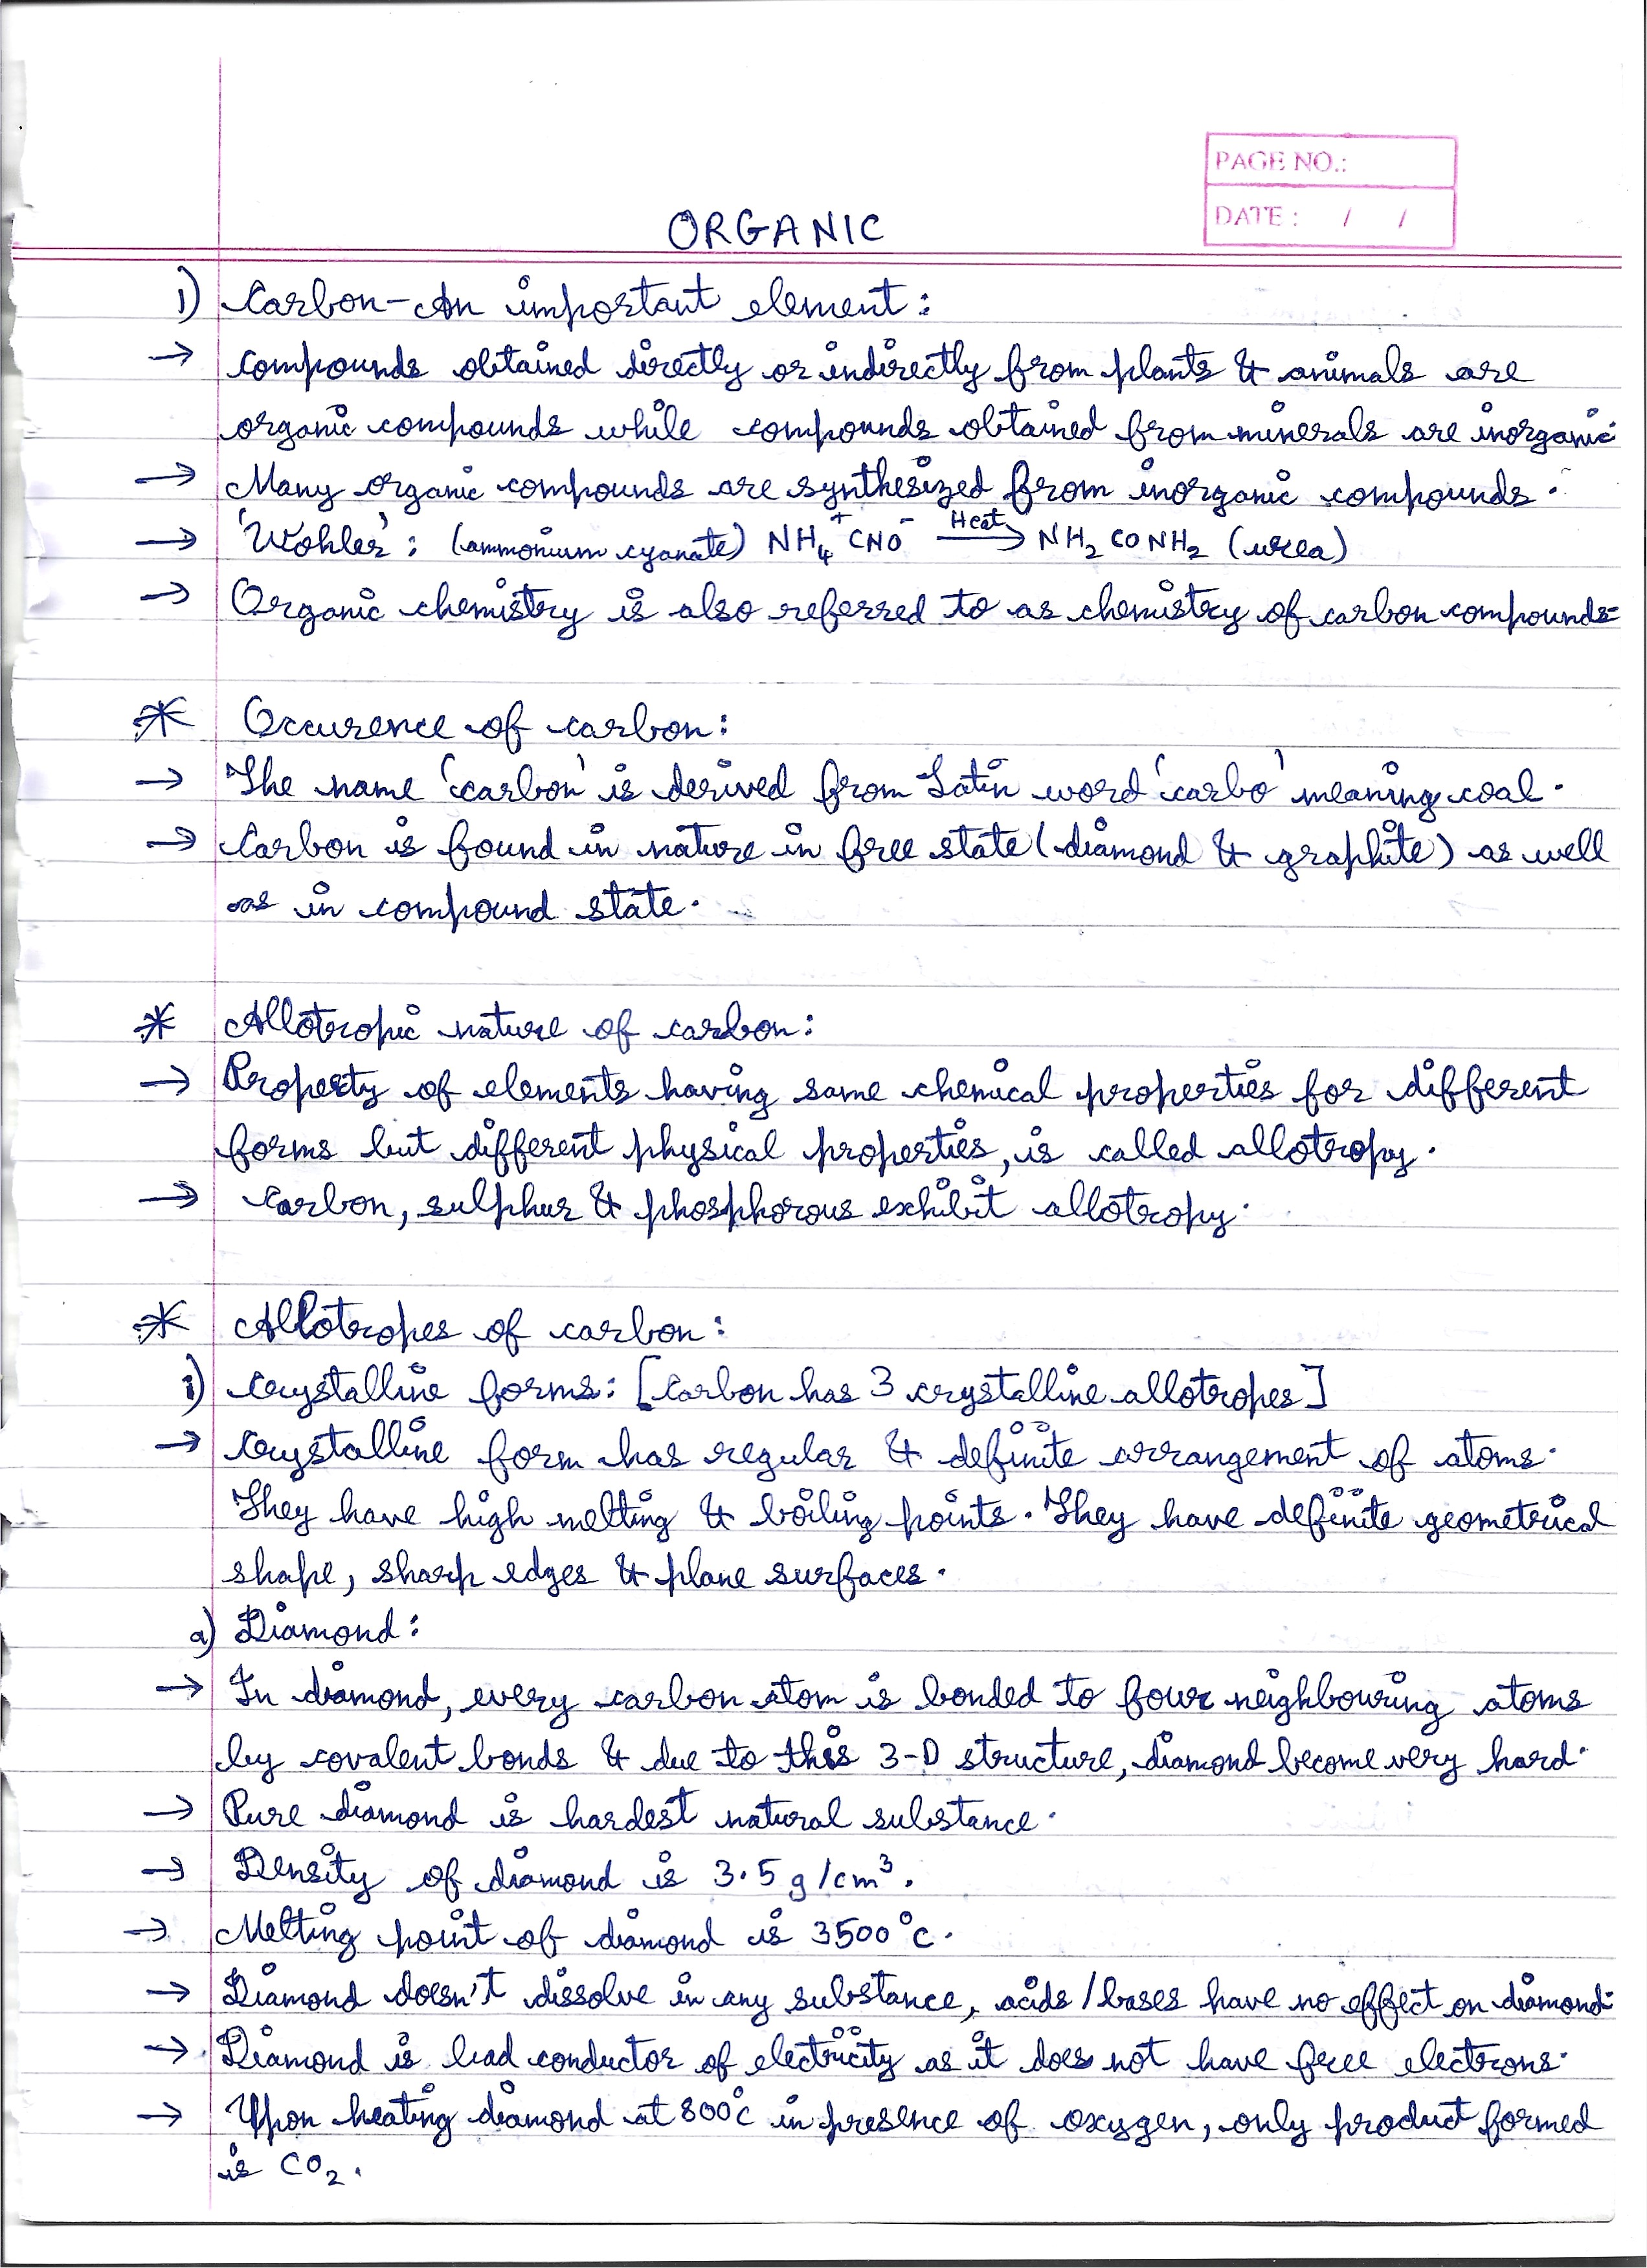 PAGE NO.:
DATE : / /
ORGANIC
1) Carbon-An important element:
→ Compounds obtained directly or indirectly from plants & animals are
organic compounds while compounds obtained from minerals are inorganic
→ Many organic compounds are synthesized from inorganic compounds.
→ 'Wohler': (ammonium cyanate) NH₄⁺CNO⁻ —Heat→ NH₂CONH₂ (urea)
→ Organic chemistry is also referred to as chemistry of carbon compounds.
* Occurence of carbon:
→ The name 'carbon' is derived from Latin word 'carbo' meaning coal.
→ Carbon is found in nature in free state (diamond & graphite) as well
as in compound state.
* Allotropic nature of carbon:
→ Property of elements having same chemical properties for different
forms but different physical properties, is called allotropy.
→ Carbon, sulphur & phosphorous exhibit allotropy.
* Allotropes of carbon:
i) Crystalline forms: [Carbon has 3 crystalline allotropes]
→ Crystalline form has regular & definite arrangement of atoms.
They have high melting & boiling points. They have definite geometrical
shape, sharp edges & plane surfaces.
a) Diamond:
→ In diamond, every carbon atom is bonded to four neighbouring atoms
by covalent bonds & due to this 3-D structure, diamond become very hard.
→ Pure diamond is hardest natural substance.
→ Density of diamond is 3.5 g/cm³.
→ Melting point of diamond is 3500°c.
→ Diamond doesn't dissolve in any substance, acids/bases have no effect on diamond.
→ Diamond is bad conductor of electricity as it does not have free electrons.
→ Upon heating diamond at 800°c in presence of oxygen, only product formed
is CO₂.